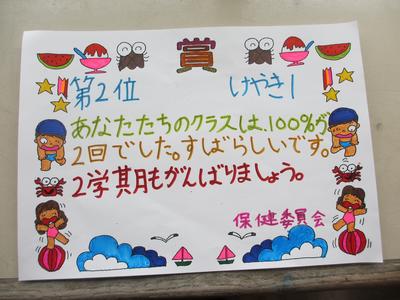 賞
第2位 けやき1
あなたたちのクラスは、100%が
2回でした。すばらしいです。
2学期もがんばりましょう。
保健委員会